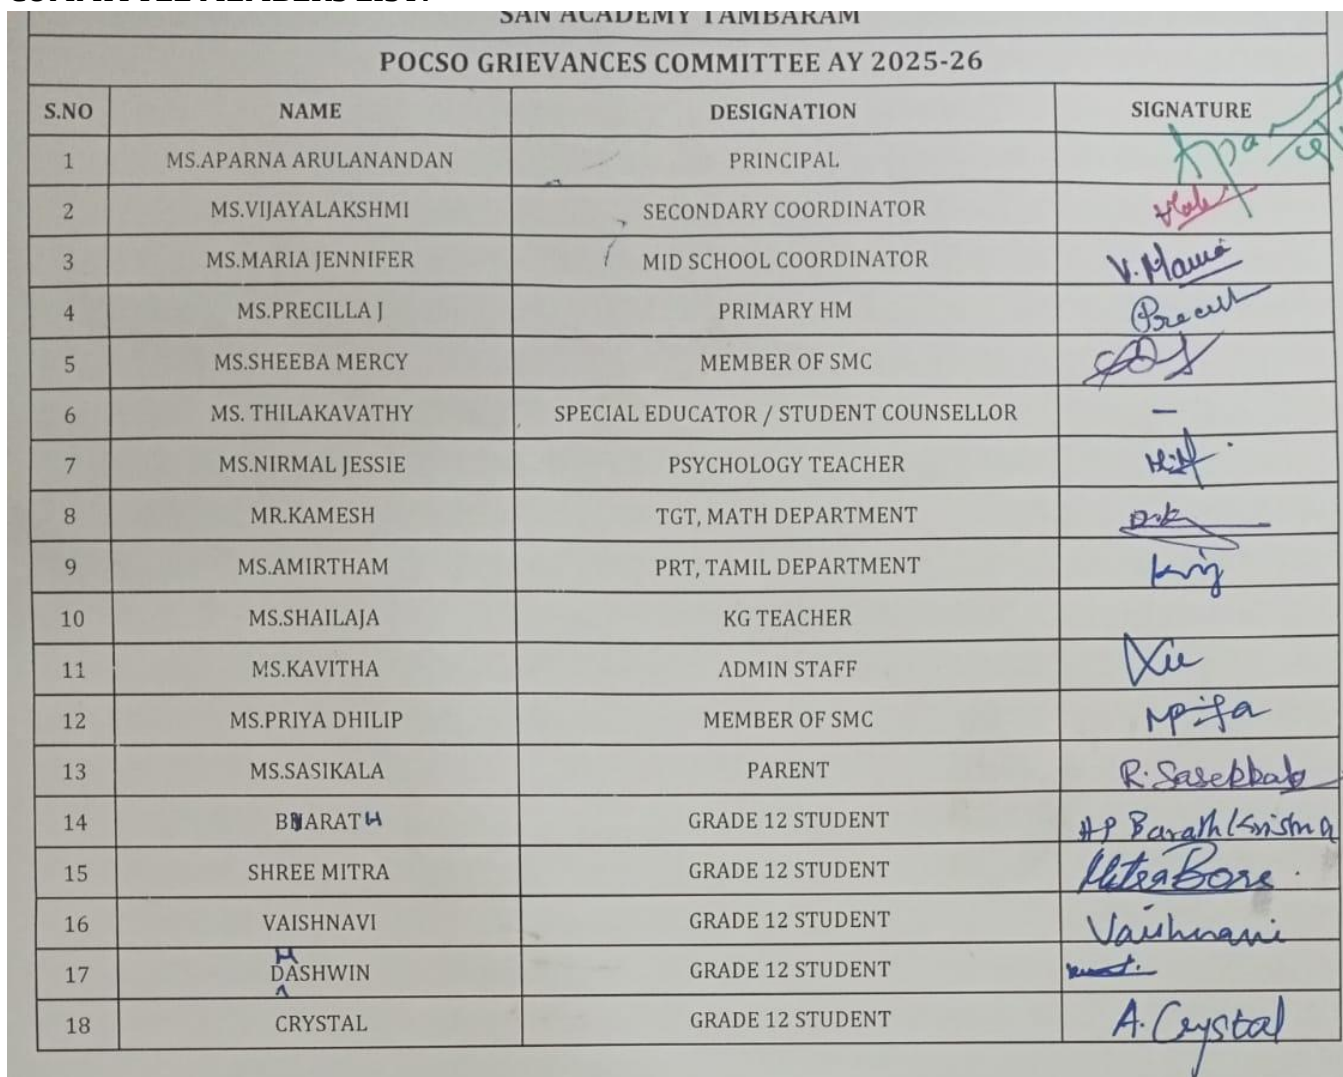 COMMITTEE MEMBERS LIST:
SAN ACADEMY TAMBARAM
POCSO GRIEVANCES COMMITTEE AY 2025-26
S.NO NAME DESIGNATION SIGNATURE
1 MS.APARNA ARULANANDAN PRINCIPAL Apa
2 MS.VIJAYALAKSHMI SECONDARY COORDINATOR
3 MS.MARIA JENNIFER MID SCHOOL COORDINATOR V. Maria
4 MS.PRECILLA J PRIMARY HM
5 MS.SHEEBA MERCY MEMBER OF SMC
6 MS. THILAKAVATHY SPECIAL EDUCATOR / STUDENT COUNSELLOR –
7 MS.NIRMAL JESSIE PSYCHOLOGY TEACHER
8 MR.KAMESH TGT, MATH DEPARTMENT
9 MS.AMIRTHAM PRT, TAMIL DEPARTMENT
10 MS.SHAILAJA KG TEACHER
11 MS.KAVITHA ADMIN STAFF
12 MS.PRIYA DHILIP MEMBER OF SMC
13 MS.SASIKALA PARENT
14 BARATH GRADE 12 STUDENT Barath Krishna
15 SHREE MITRA GRADE 12 STUDENT
16 VAISHNAVI GRADE 12 STUDENT Vaishnavi
17 DHASHWIN GRADE 12 STUDENT
18 CRYSTAL GRADE 12 STUDENT A. Crystal